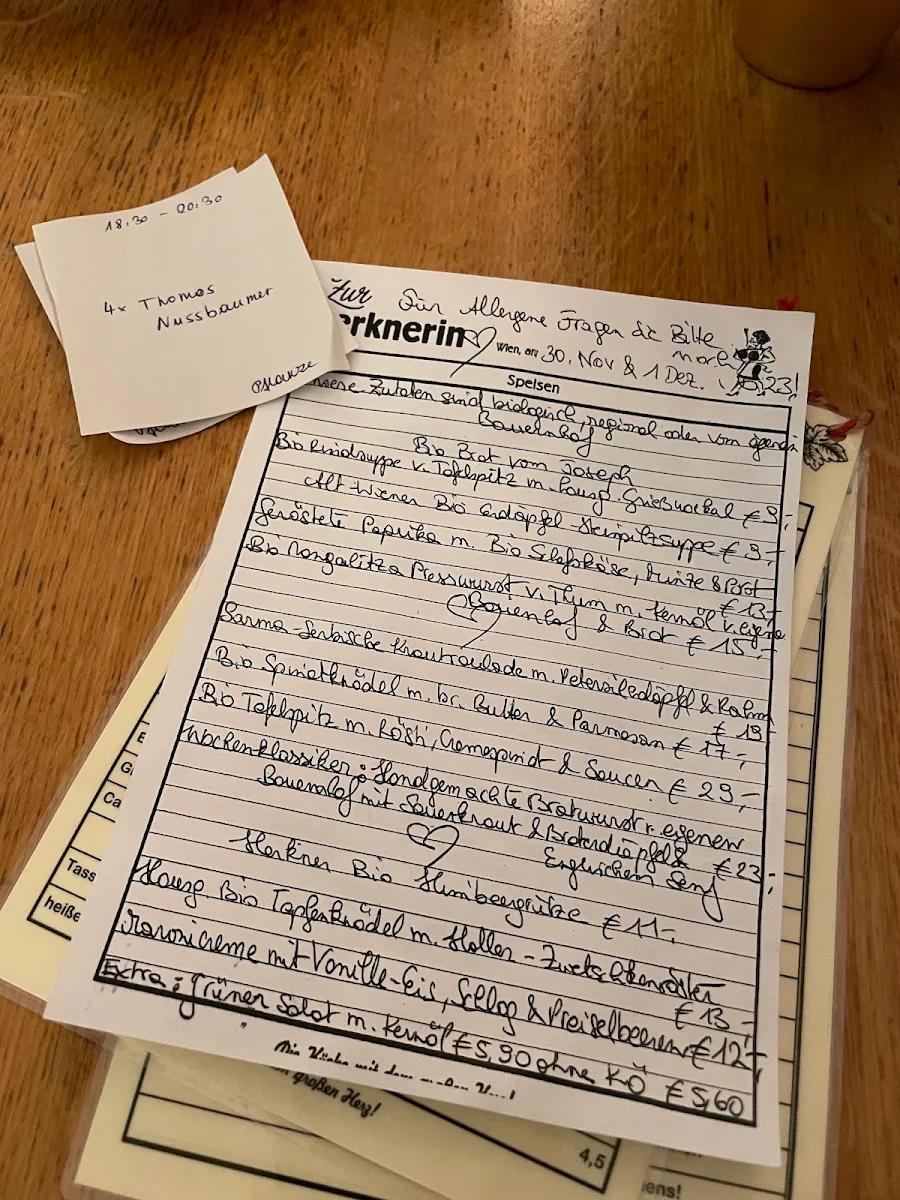 18:30 - 20:30
4x Thomas
Nussbaumer
Zur
erknerin
Für Allergene Fragen Sie Bitte
nach
Wien, am 30. Nov & 1 Dez. 23!
Speisen
Zutaten sind biologisch, regional oder vom eigenen
Bauernhof
Bio Brot vom Joseph
Bio Rindsuppe v. Tafelspitz m. hausg. Griesnockal € 9,-
Alt-Wiener Bio Erdäpfel-Steinpilzsuppe € 9,-
Geröstete Paprika m. Bio Schafskäse, Minze & Brot
€ 13,-
Bio Mangalitza Presswurst v. Thum m. Kernöl v. eigenen
Bauernhof & Brot € 15,-
Sarma-Serbische Krautroulade m. Petersilerdäpfl & Rahm
€ 19,-
Bio Spinatknödel m. br. Butter & Parmesan € 17,-
Bio Tafelspitz m. Rösti, Cremespinat & Saucen € 29,-
Wochenklassiker: Handgemachte Bratwurst v. eigenen
Bauernhof mit Sauerkraut & Braterdäpfel &
Englischen Senf € 23,-
Herkner Bio Himbeergrütze € 11,-
Hausg Bio Topfenknödel m. Holler-Zwetschkenröster
€ 13,-
Maronicreme mit Vanille-Eis, Schlag & Preiselbeeren € 12,-
Extra: Grüner Salat m. Kernöl € 5,90 ohne KÖ € 5,60
großen Herz!
G
Ca
Tass
heiße
4,5
ens!